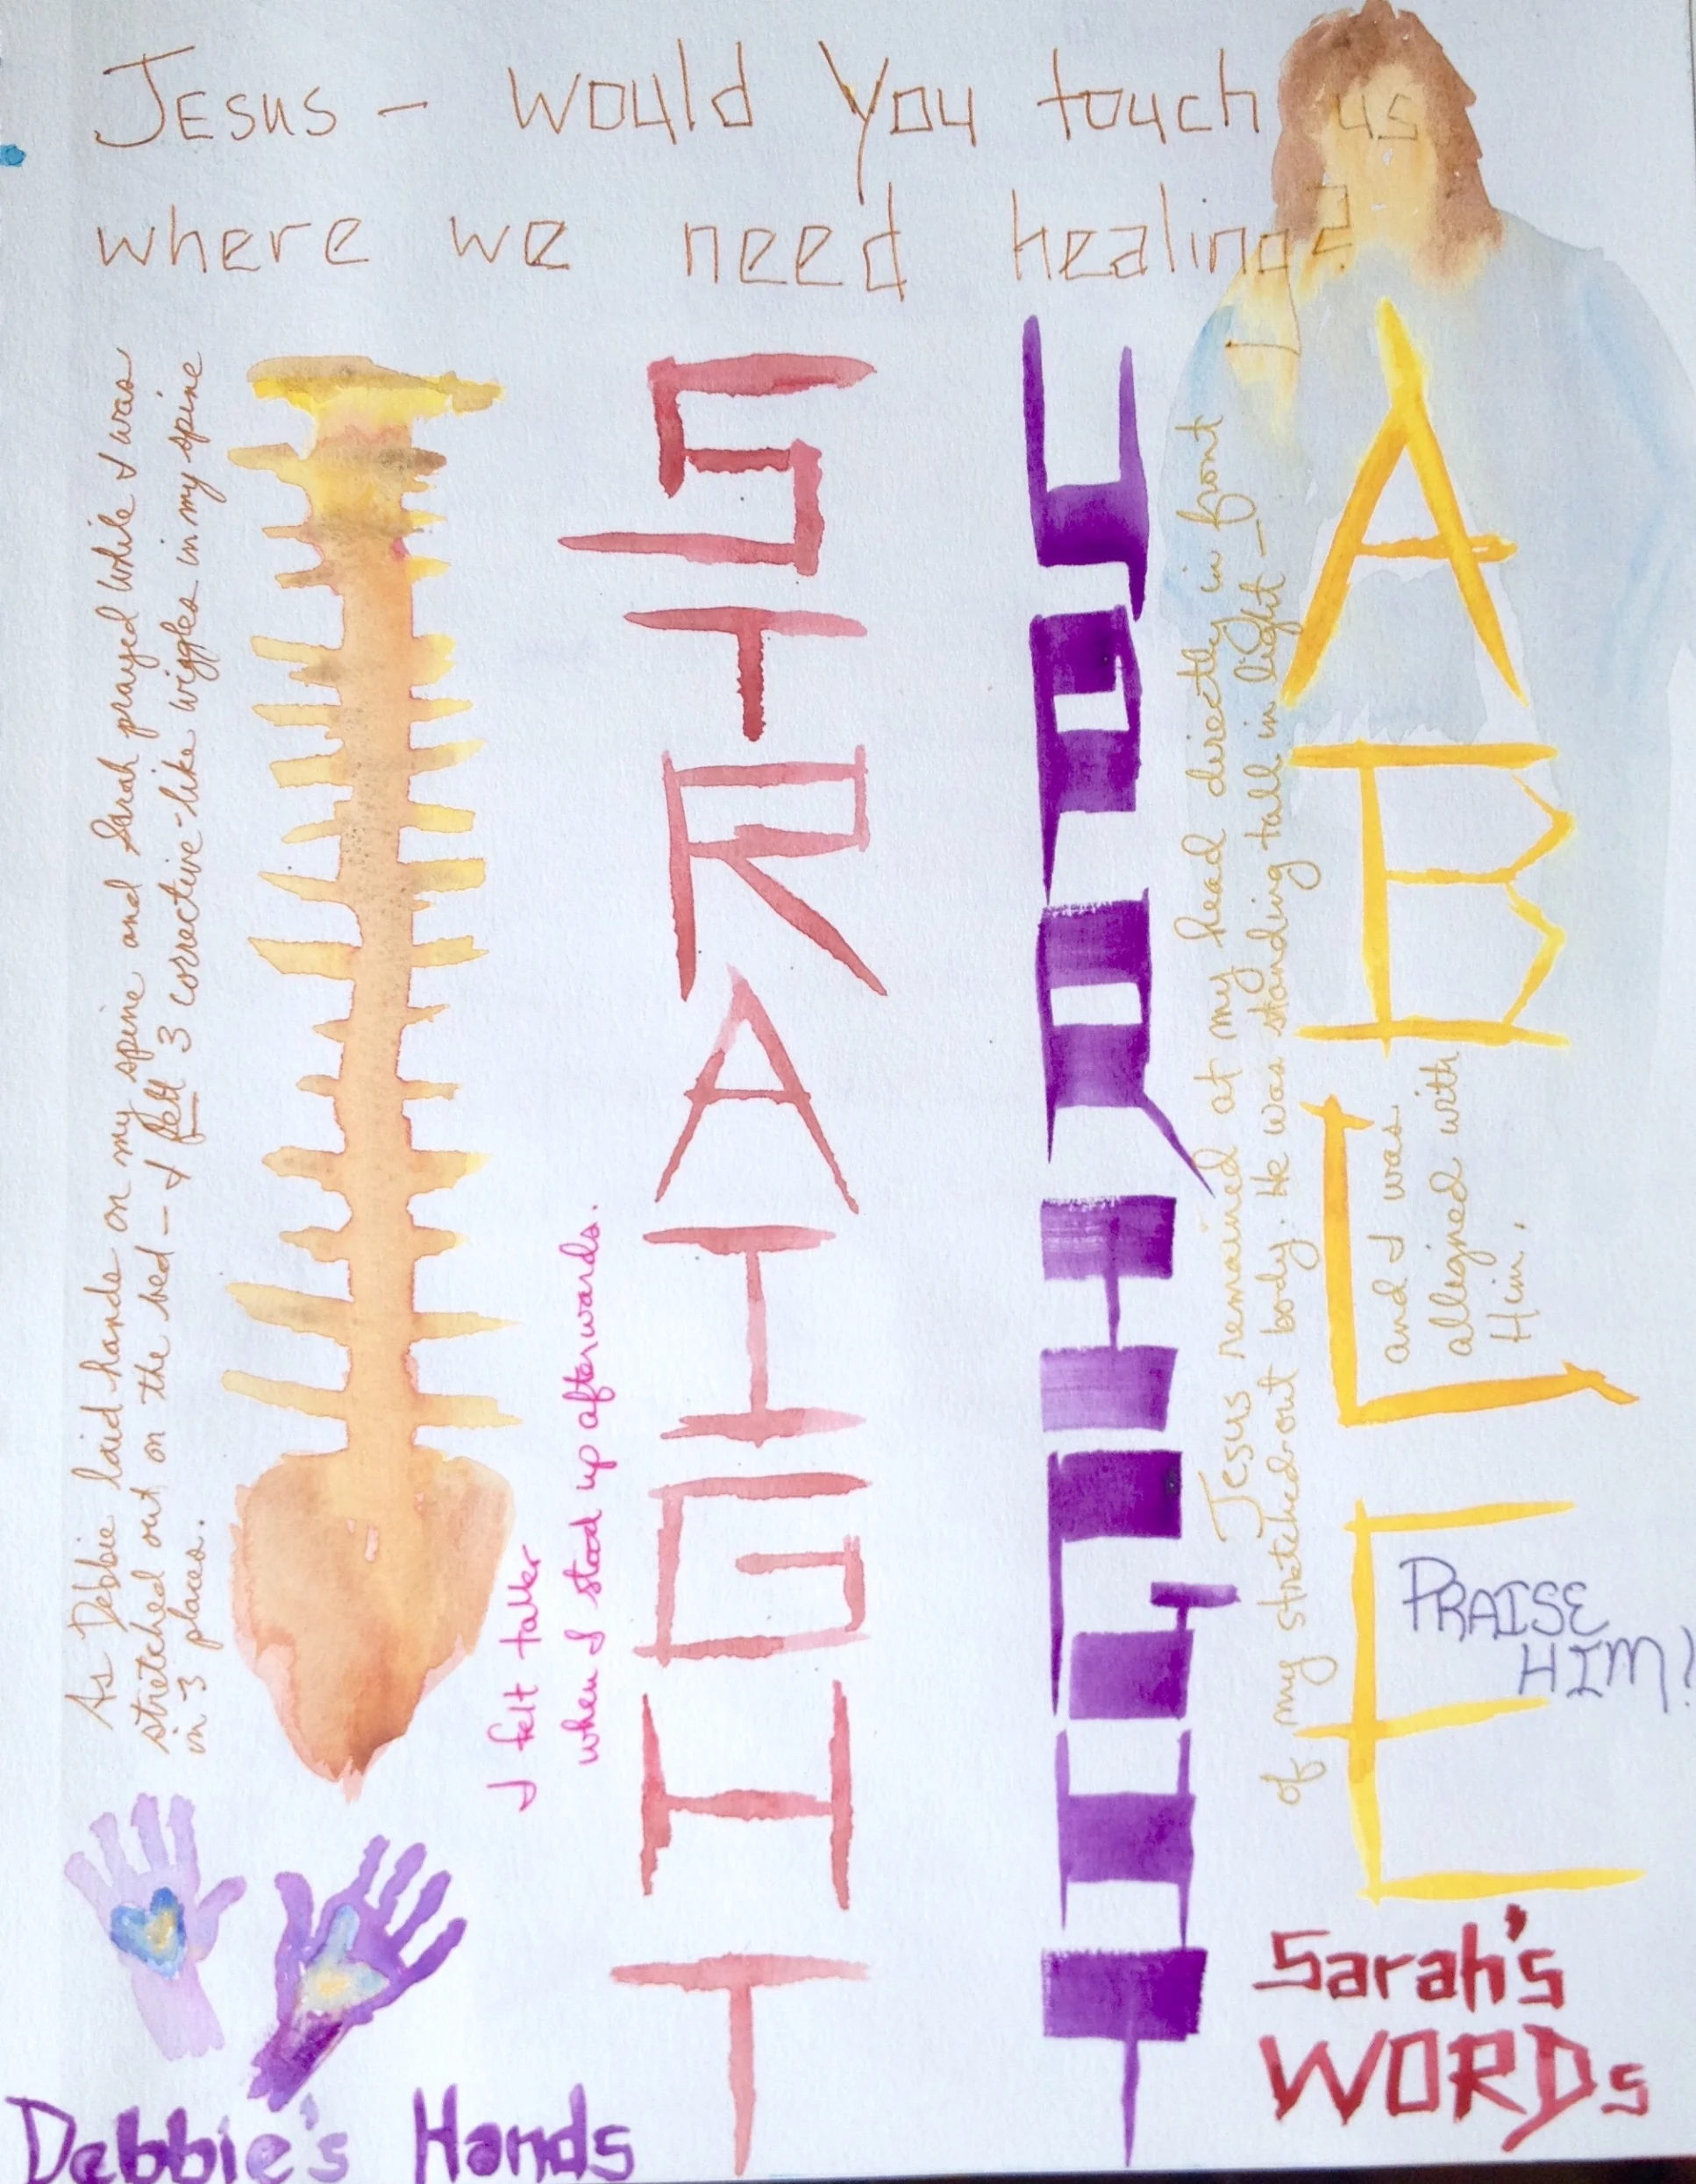 JESUS - would You touch us
where we need healing?
As Debbie laid hands on my spine and Sarah prayed while I was
stretched out on the bed - I felt 3 corrective-like wiggles in my spine
in 3 places.
I felt taller
when I stood up afterwards.
STRAIGHT
UPRIGHT
Jesus remained at my head directly in front
of my stretched out body. He was standing tall in light -
and I was
alligned with
Him.
ABLE
PRAISE
HIM!
Debbie's Hands
Sarah's
WORDs